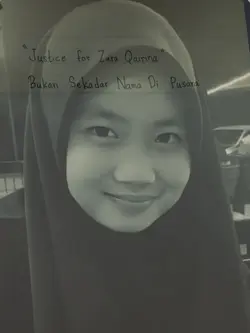 "Justice For Zara Qairina"
Bukan Sekadar Nama Di Pusara